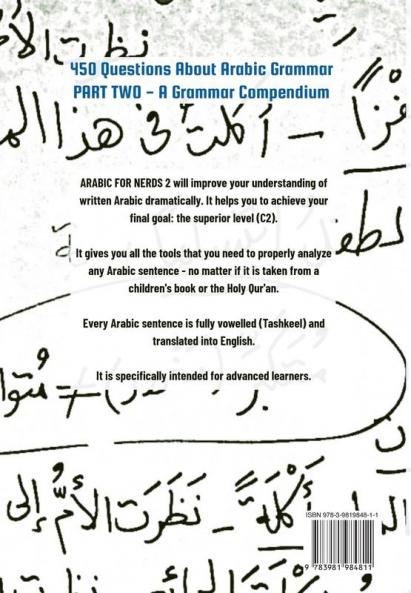 نظرت الأ
450 Questions About Arabic Grammar
PART TWO – A Grammar Compendium
أكلت في هذا الم
ARABIC FOR NERDS 2 will improve your understanding of
written Arabic dramatically. It helps you to achieve your
final goal: the superior level (C2).
It gives you all the tools that you need to properly analyze
any Arabic sentence - no matter if it is taken from a
children's book or the Holy Qur'an.
Every Arabic sentence is fully vowelled (Tashkeel) and
translated into English.
It is specifically intended for advanced learners.
أَكْلَةً – نَظَرَت الأُمُّ إلى
ISBN 978-3-9819848-1-1
9 783981 984811